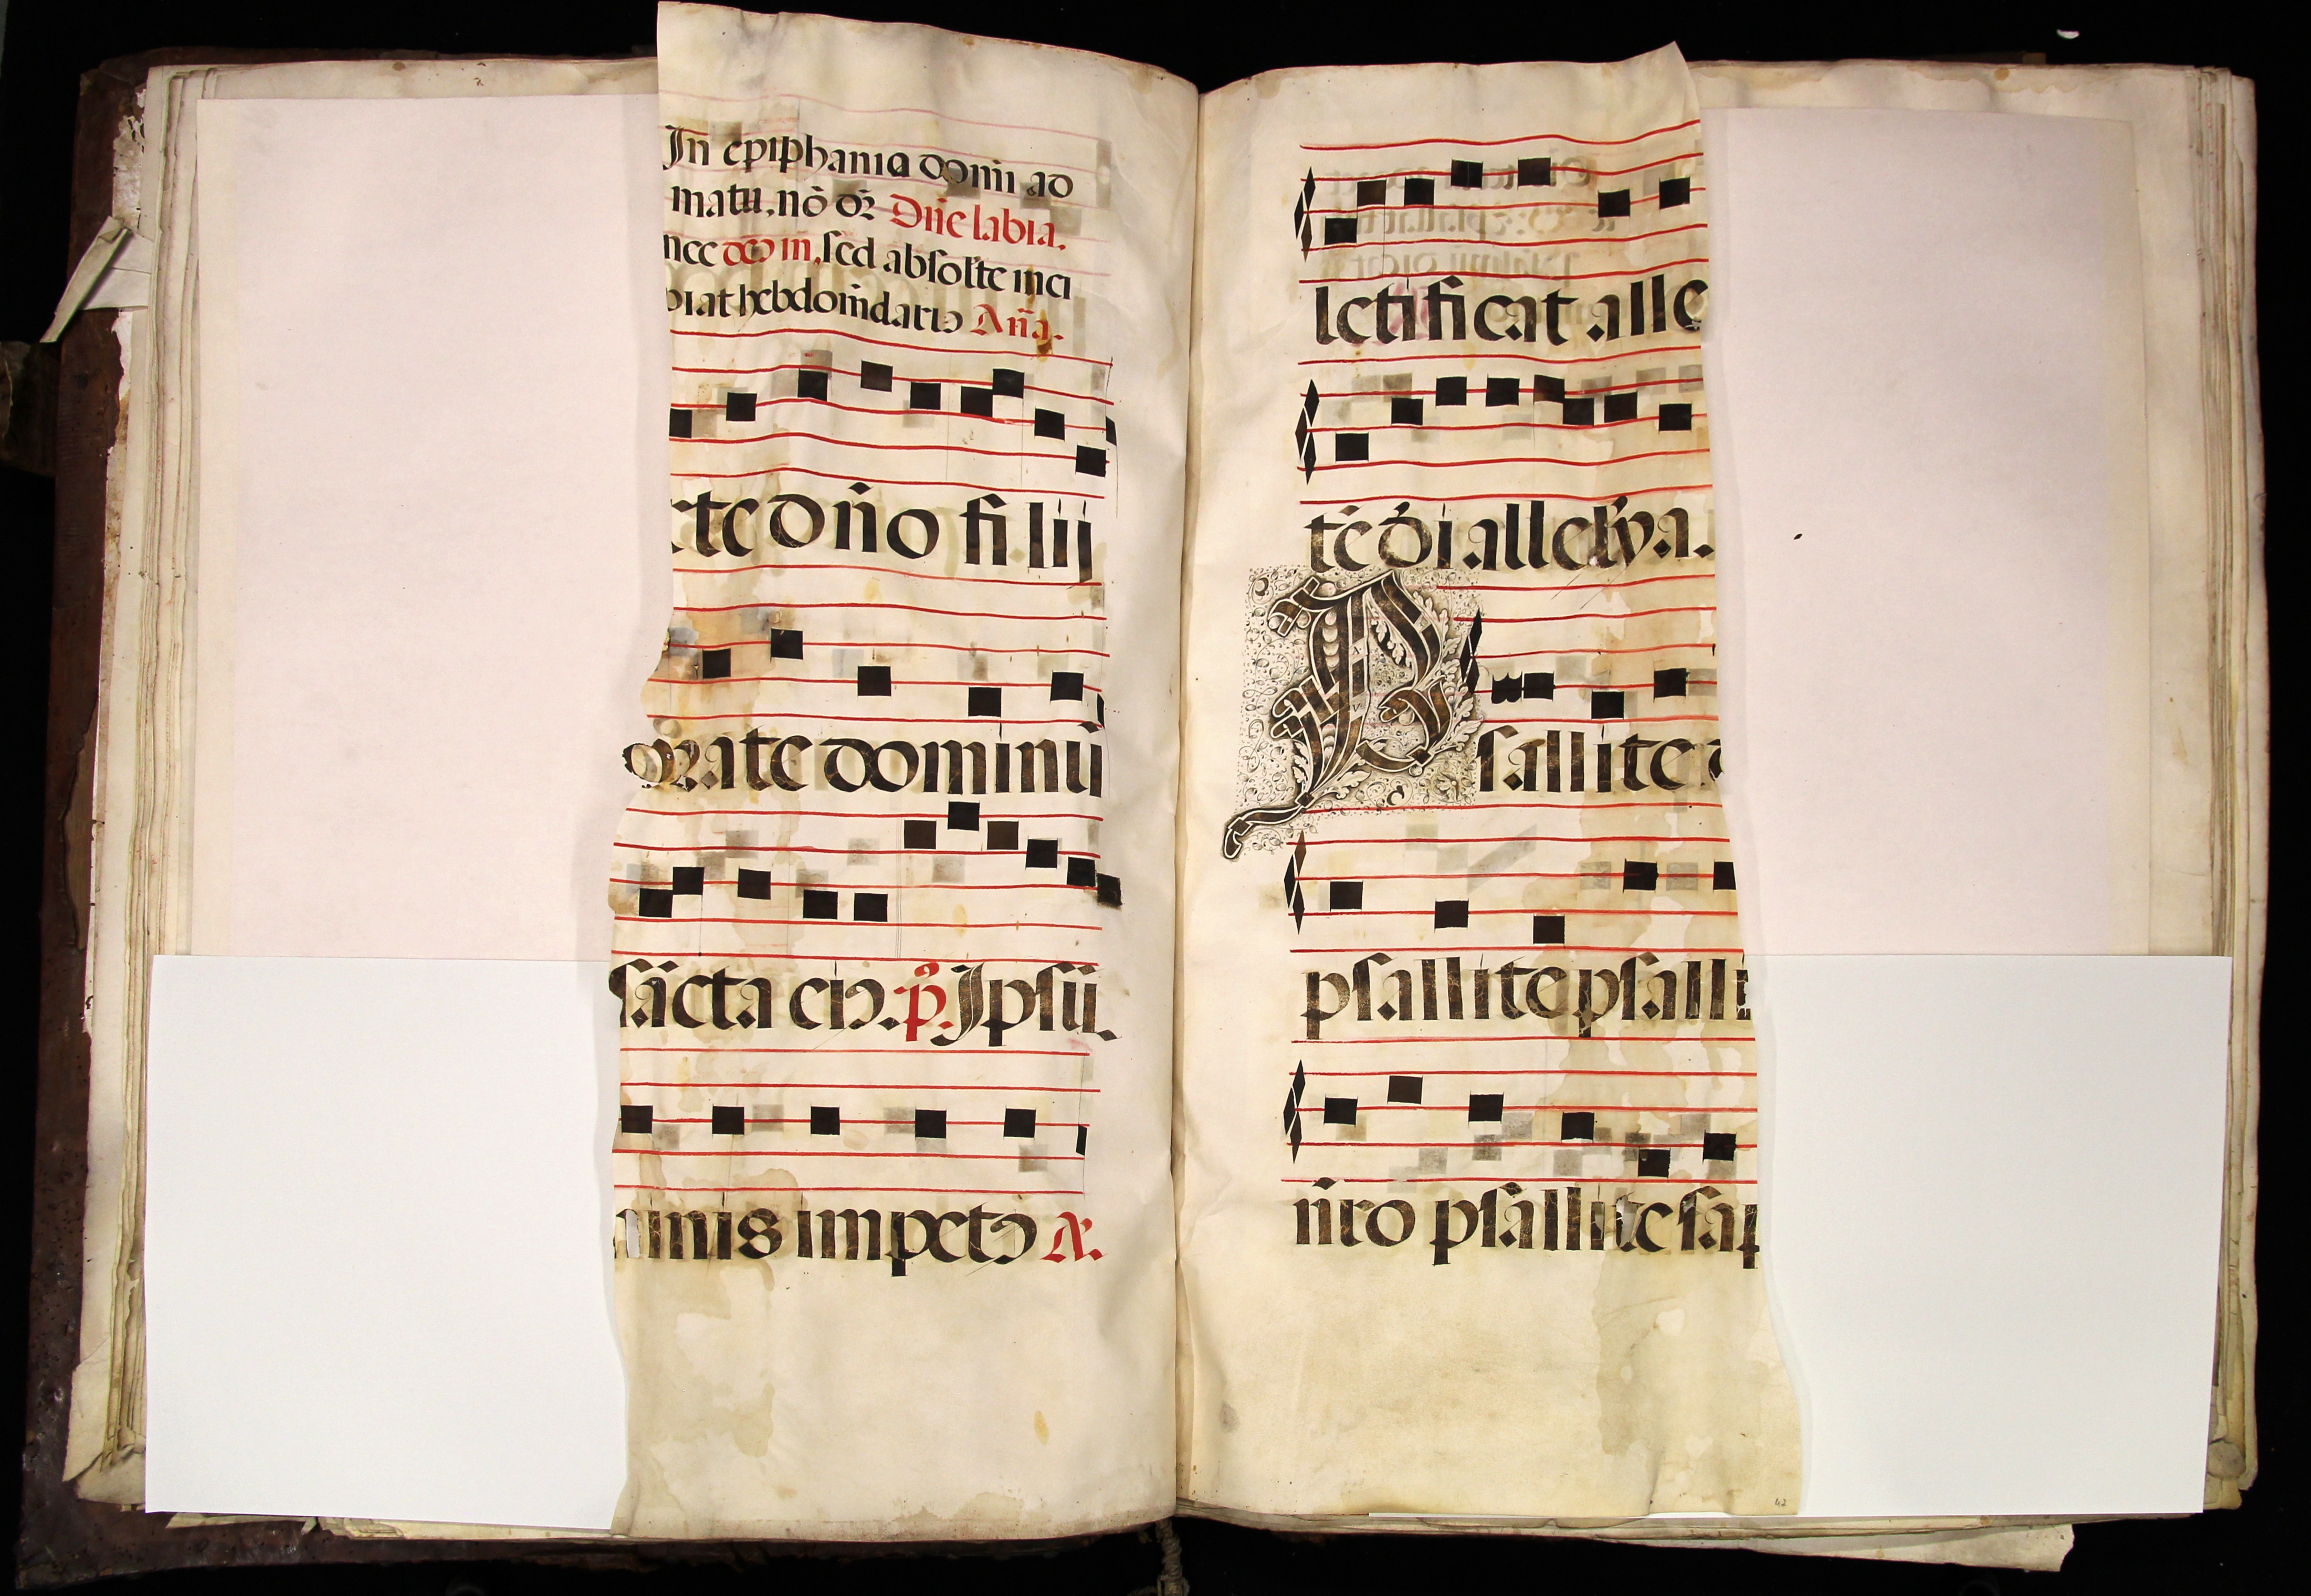 In epiphania dom̄i ad
matu, nō dr̄ Dn̄e labia.
nec deo in, sed absolte inci
piat hebdom̄dariꝰ An̄a.
rte dn̄o filij
orate dominū
sācta eiꝰ. p̄. Ipsū.
minis impetꝰ A.
letificat alle
tē dī alleluya.
Psallite d
psallite psalli
n̄ro psallite sap
42